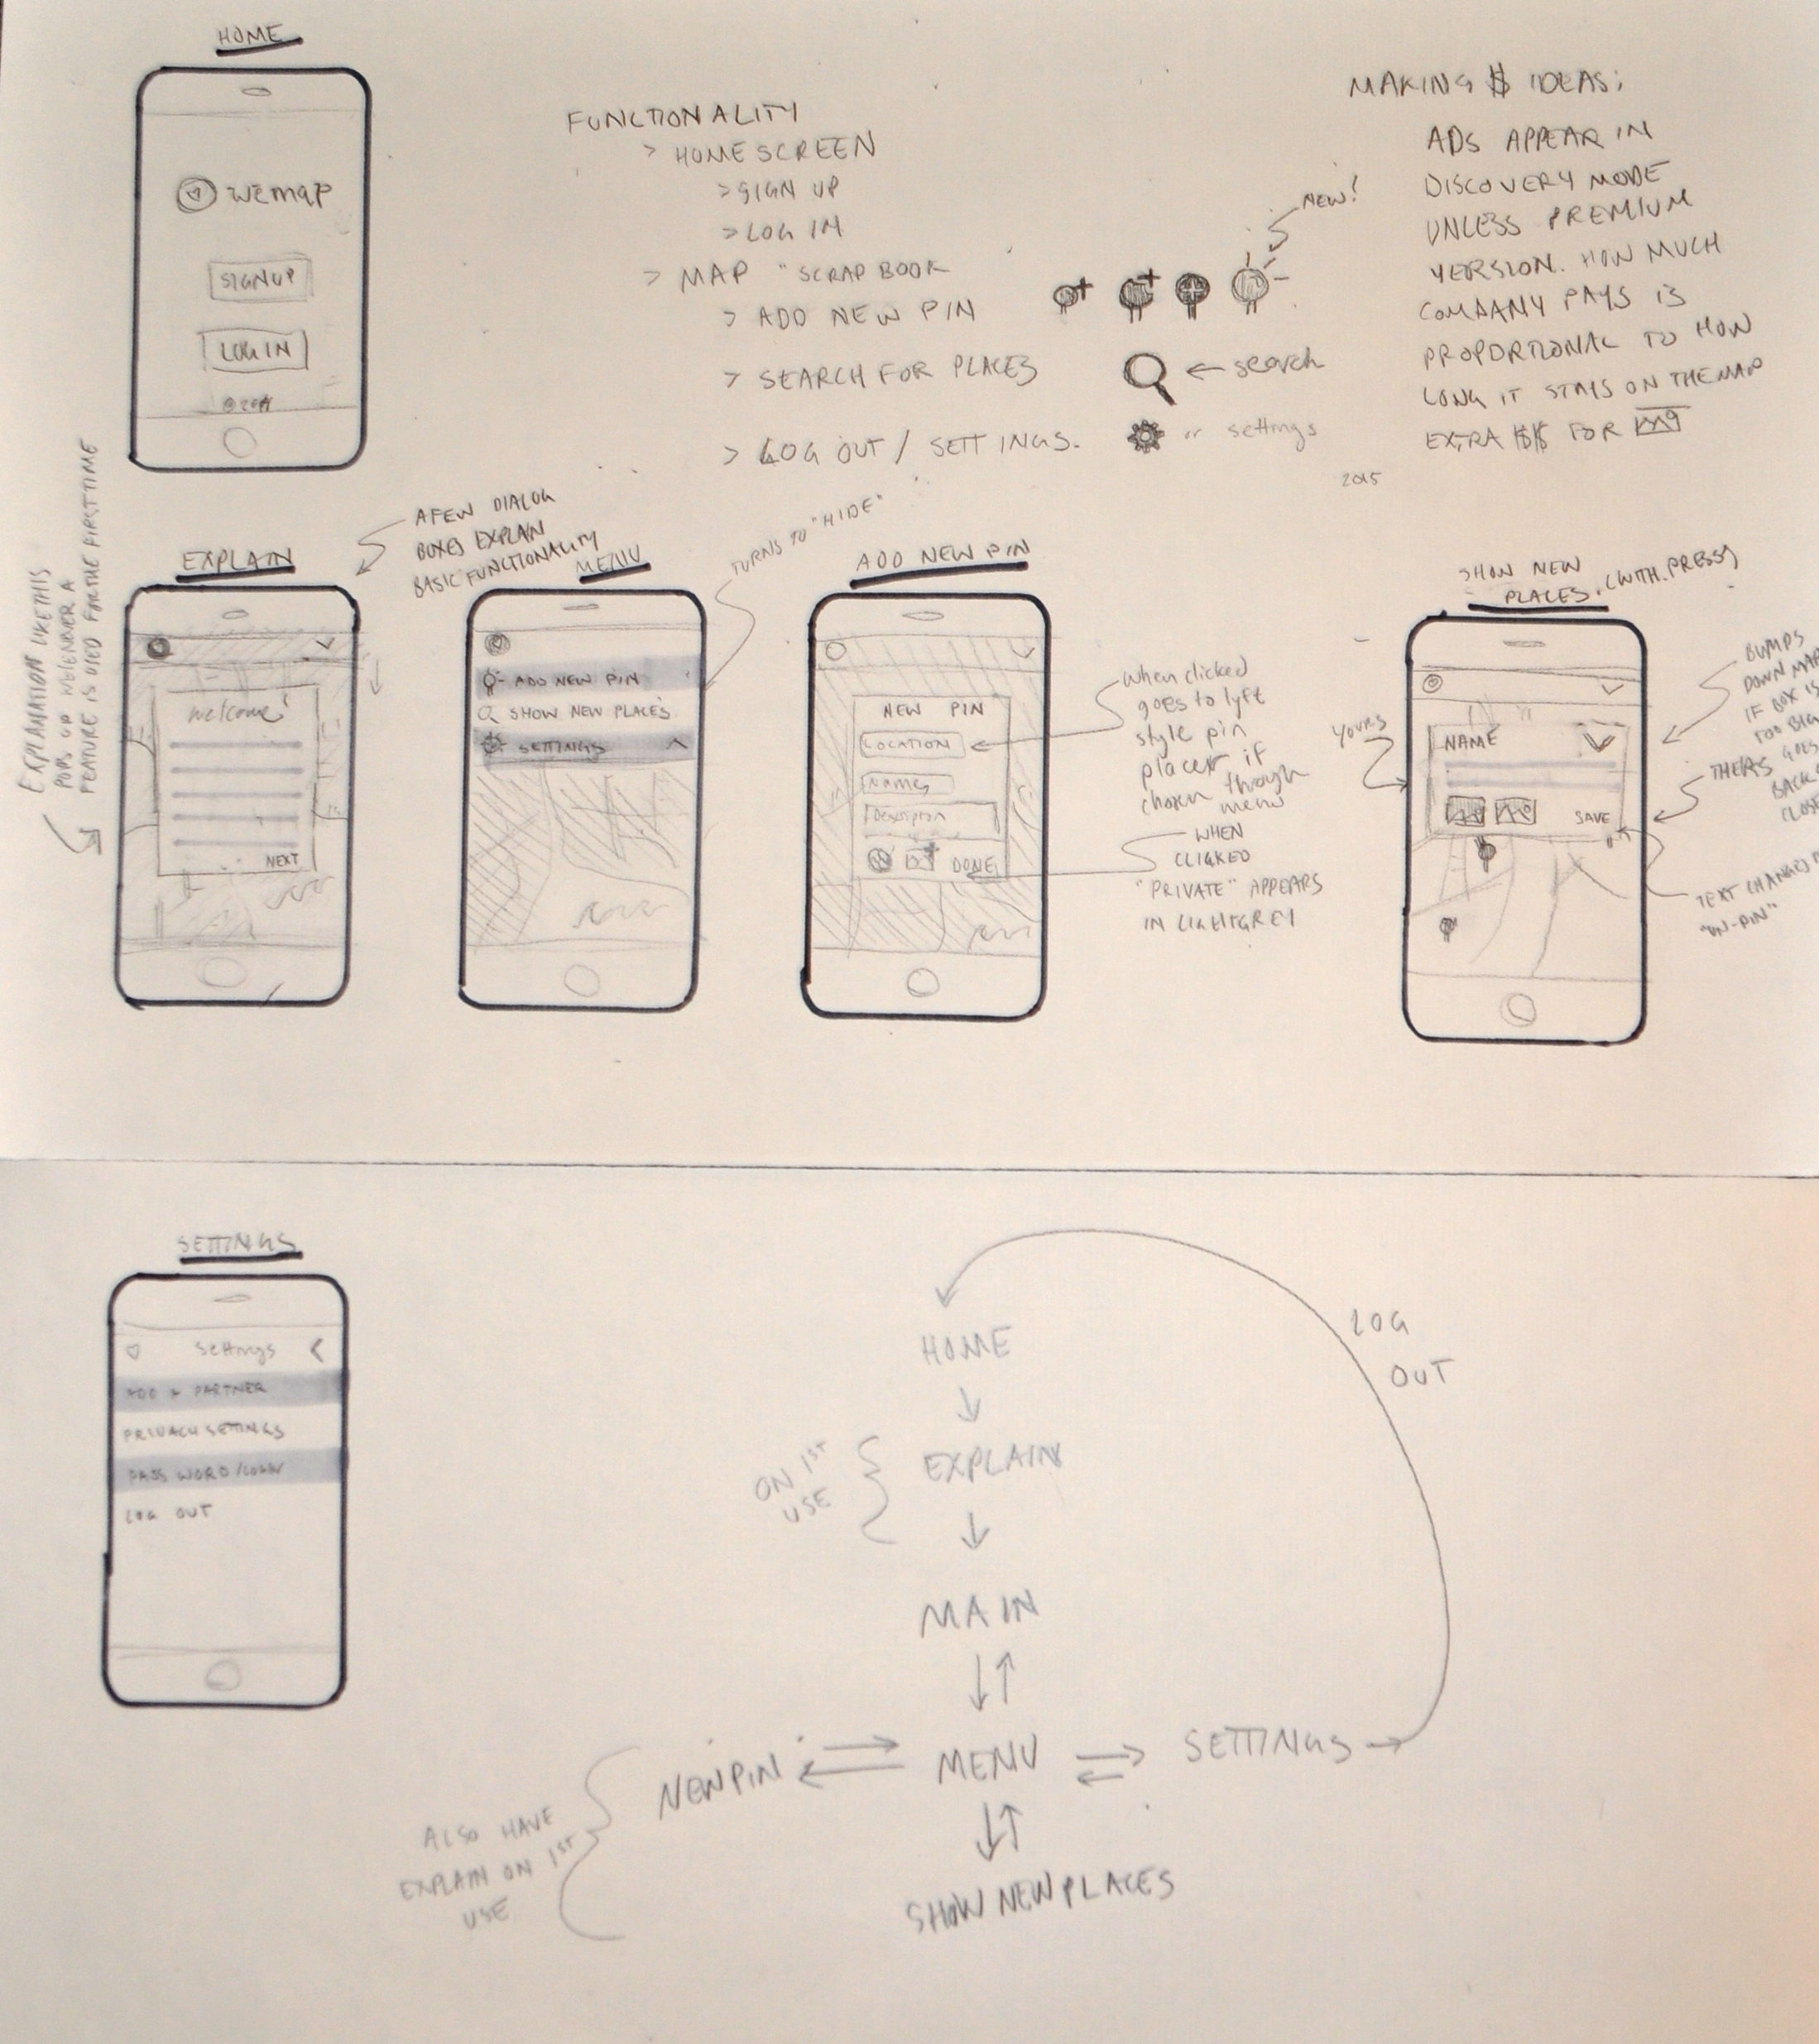 HOME
wemap
SIGN UP
LOG IN
FUNCTIONALITY
> HOME SCREEN
> SIGN UP
> LOG IN
> MAP "SCRAP BOOK
> ADD NEW PIN
> SEARCH FOR PLACES
> LOG OUT / SETTINGS.
NEW!
← search
or settings
MAKING $ IDEAS:
ADS APPEAR IN
DISCOVERY MODE
UNLESS PREMIUM
VERSION. HOW MUCH
COMPANY PAYS IS
PROPORTIONAL TO HOW
LONG IT STAYS ON THE MAP
EXTRA $$ FOR
2015
EXPLANATION LIKE THIS
POPS UP WHENEVER A
FEATURE IS USED FOR THE FIRST TIME
EXPLAIN
A FEW DIALOG
BOXES EXPLAIN
BASIC FUNCTIONALITY
welcome!
NEXT
MENU
TURNS TO "HIDE"
ADD NEW PIN
SHOW NEW PLACES
SETTINGS
ADD NEW PIN
NEW PIN
LOCATION
Name
Description
DONE
when clicked
goes to lyft
style pin
placer if
chosen through
menu
WHEN
CLICKED
"PRIVATE" APPEARS
IN LIGHTGREY
SHOW NEW
PLACES. (WITH PRESS)
YOURS
NAME
SAVE
BUMPS
DOWN MAP
IF BOX IS
TOO BIG
GOES
BACK
TEXT CHANGES
"UN-PIN"
SETTINGS
Settings
ADD A PARTNER
PRIVACY SETTINGS
PASS WORD/LOGIN
LOG OUT
LOG
OUT
HOME
ON 1ST
USE
EXPLAIN
MAIN
NEW PIN
MENU
SETTINGS
ALSO HAVE
EXPLAIN ON 1ST
USE
SHOW NEW PLACES